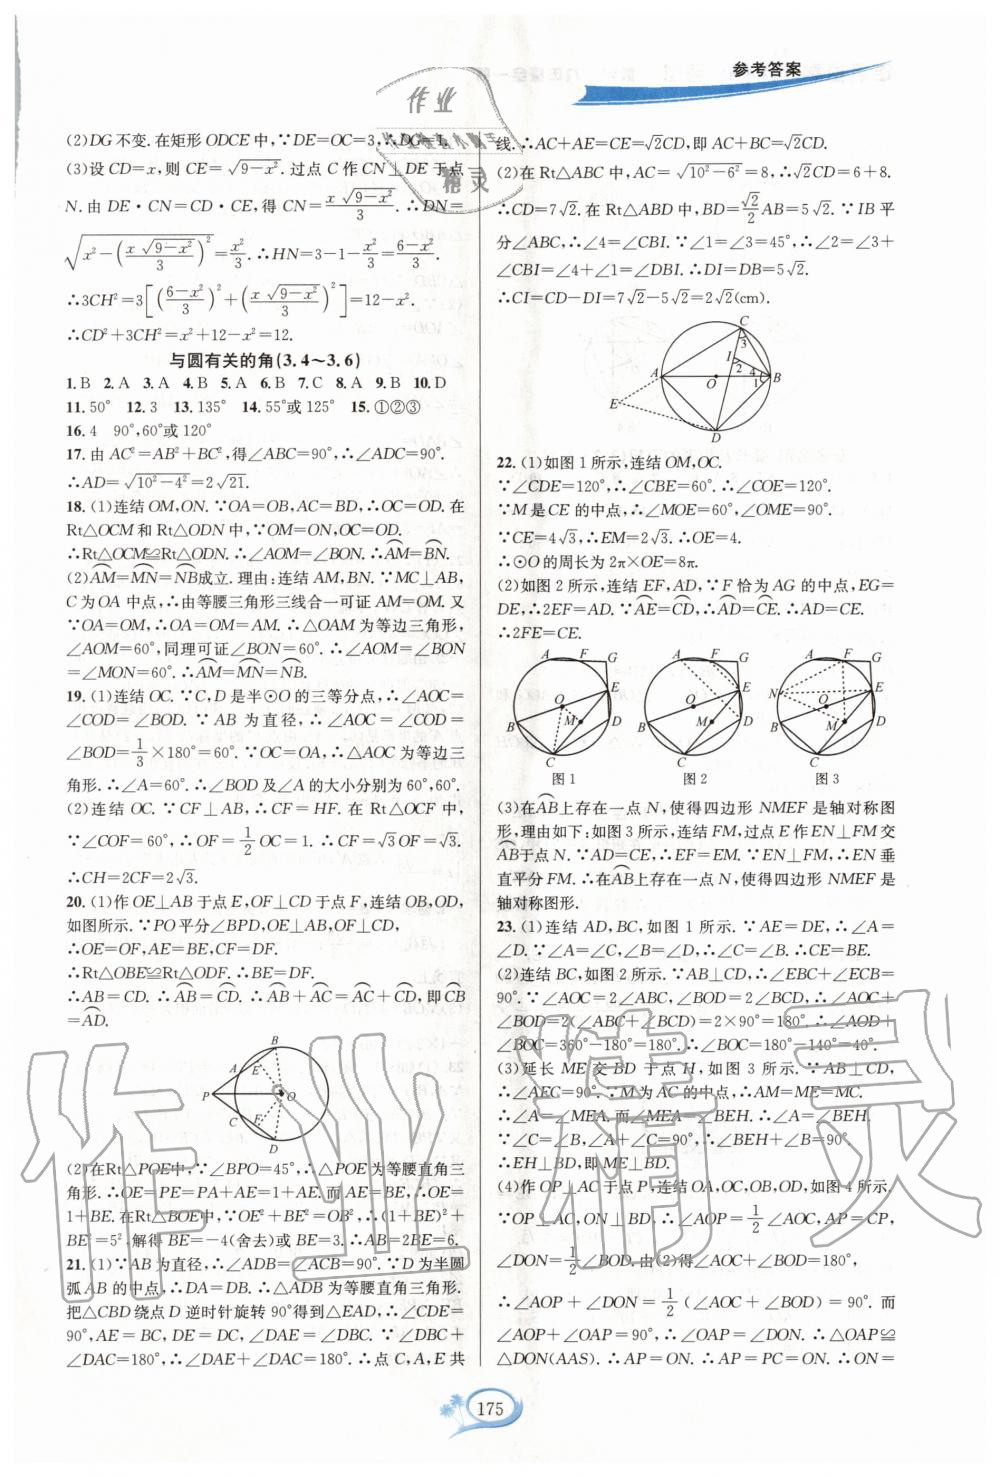 参考答案
(2)DG不变.在矩形ODCE中,∵DE=OC=3,∴DG=1.
(3)设CD=x,则CE=√(9-x²).过点C作CN⊥DE于点
N.由DE·CN=CD·CE,得CN=x√(9-x²)/3.∴DN=
√(x²-(x√(9-x²)/3)²)=x²/3.∴HN=3-1-x²/3=(6-x²)/3.
∴3CH²=3[((6-x²)/3)²+(x√(9-x²)/3)²]=12-x².
∴CD²+3CH²=x²+12-x²=12.
与圆有关的角(3.4~3.6)
1.B 2.A 3.A 4.B 5.A 6.B 7.C 8.A 9.B 10.D
11.50° 12.3 13.135° 14.55°或125° 15.①②③
16.4 90°,60°或120°
17.由AC²=AB²+BC²,得∠ABC=90°,∴∠ADC=90°.
∴AD=√(10²-4²)=2√21.
18.(1)连结OM,ON.∵OA=OB,AC=BD,∴OC=OD.在
Rt△OCM和Rt△ODN中,∵OM=ON,OC=OD.
∴Rt△OCM≌Rt△ODN.∴∠AOM=∠BON.∴AM⌒=BN⌒.
(2)AM⌒=MN⌒=NB⌒成立.理由:连结AM,BN.∵MC⊥AB,
C为OA中点,∴由等腰三角形三线合一可证AM=OM.又
∵OA=OM,∴OA=OM=AM.∴△OAM为等边三角形,
∠AOM=60°,同理可证∠BON=60°.∴∠AOM=∠BON
=∠MON=60°.∴AM⌒=MN⌒=NB⌒.
19.(1)连结OC.∵C,D是半⊙O的三等分点,∴∠AOC=
∠COD=∠BOD.∵AB为直径,∴∠AOC=∠COD=
∠BOD=1/3×180°=60°.∵OC=OA,∴△AOC为等边三
角形.∴∠A=60°.∴∠BOD及∠A的大小分别为60°,60°.
(2)连结OC.∵CF⊥AB,∴CF=HF.在Rt△OCF中,
∵∠COF=60°,∴OF=1/2OC=1.∴CF=√3OF=√3.
∴CH=2CF=2√3.
20.(1)作OE⊥AB于点E,OF⊥CD于点F,连结OB,OD,
如图所示.∵PO平分∠BPD,OE⊥AB,OF⊥CD,
∴OE=OF,AE=BE,CF=DF.
∴Rt△OBE≌Rt△ODF.∴BE=DF.
∴AB=CD.∴AB⌒=CD⌒.∴AB⌒+AC⌒=AC⌒+CD⌒,即CB⌒
=AD⌒.
B
A
E
P
O
C
F
D
(2)在Rt△POE中,∵∠BPO=45°,∴△POE为等腰直角三
角形.∴OE=PE=PA+AE=1+AE.而AE=BE,∴OE=
1+BE.在Rt△BOE中,∵OE²+BE²=OB²,∴(1+BE)²+
BE²=5²,解得BE=-4(舍去)或BE=3.∴AB=2BE=6.
21.(1)∵AB为直径,∴∠ADB=∠ACB=90°.∵D为半圆
弧AB的中点,∴DA=DB.∴△ADB为等腰直角三角形.
把△CBD绕点D逆时针旋转90°得到△EAD,∴∠CDE=
90°,AE=BC,DE=DC,∠DAE=∠DBC.∵∠DBC+
∠DAC=180°,∴∠DAE+∠DAC=180°,∴点C,A,E共
线.∴AC+AE=CE=√2CD,即AC+BC=√2CD.
(2)在Rt△ABC中,AC=√(10²-6²)=8,∴√2CD=6+8.
∴CD=7√2.在Rt△ABD中,BD=√2/2AB=5√2.∵IB平
分∠ABC,∴∠4=∠CBI.∵∠1=∠3=45°,∴∠2=∠3+
∠CBI=∠4+∠1=∠DBI.∴DI=DB=5√2.
∴CI=CD-DI=7√2-5√2=2√2(cm).
C
3
I
2
4
A
O
1
B
E
D
22.(1)如图1所示,连结OM,OC.
∵∠CDE=120°,∴∠CBE=60°.∴∠COE=120°.
∵M是CE的中点,∴∠MOE=60°,∠OME=90°.
∵CE=4√3,∴EM=2√3.∴OE=4.
∴⊙O的周长为2π×OE=8π.
(2)如图2所示,连结EF,AD,∵F恰为AG的中点,EG=
DE,∴2EF=AD.∵AE⌒=CD⌒,∴AD⌒=CE⌒.∴AD=CE.
∴2FE=CE.
A F G
E
O
B
M
D
C
图1
A F G
E
O
B
M
D
C
图2
A F G
N
E
O
B
M
D
C
图3
(3)在AB⌒上存在一点N,使得四边形NMEF是轴对称图
形,理由如下:如图3所示,连结FM,过点E作EN⊥FM交
AB⌒于点N.∵AD=CE,∴EF=EM.∵EN⊥FM,∴EN垂
直平分FM.∴在AB⌒上存在一点N,使得四边形NMEF是
轴对称图形.
23.(1)连结AD,BC,如图1所示.∵AE=DE,∴∠A=
∠D.∵∠A=∠C,∠B=∠D,∴∠C=∠B.∴CE=BE.
(2)连结BC,如图2所示.∵AB⊥CD,∴∠EBC+∠ECB=
90°.∵∠AOC=2∠ABC,∠BOD=2∠BCD,∴∠AOC+
∠BOD=2(∠ABC+∠BCD)=2×90°=180°.∴∠AOD+
∠BOC=360°-180°=180°.∴∠BOC=180°-140°=40°.
(3)延长ME交BD于点H,如图3所示.∵AB⊥CD,
∴∠AEC=90°.∵M为AC的中点,∴AM=ME=MC.
∴∠A=∠MEA.而∠MEA=∠BEH.∴∠A=∠BEH.
∵∠C=∠B,∠A+∠C=90°,∴∠BEH+∠B=90°.
∴EH⊥BD,即ME⊥BD.
(4)作OP⊥AC于点P,连结OA,OC,OD,如图4所示.
∵OP⊥AC,ON⊥BD,∴∠AOP=1/2∠AOC,AP=CP,
∠DON=1/2∠BOD.由(2)得∠AOC+∠BOD=180°,
∴∠AOP+∠DON=1/2(∠AOC+∠BOD)=90°.而
∠AOP+∠OAP=90°,∴∠OAP=∠DON.∴△OAP≌
△DON(AAS).∴AP=ON.∴AP=PC=ON.∴ON=
175
作业精灵